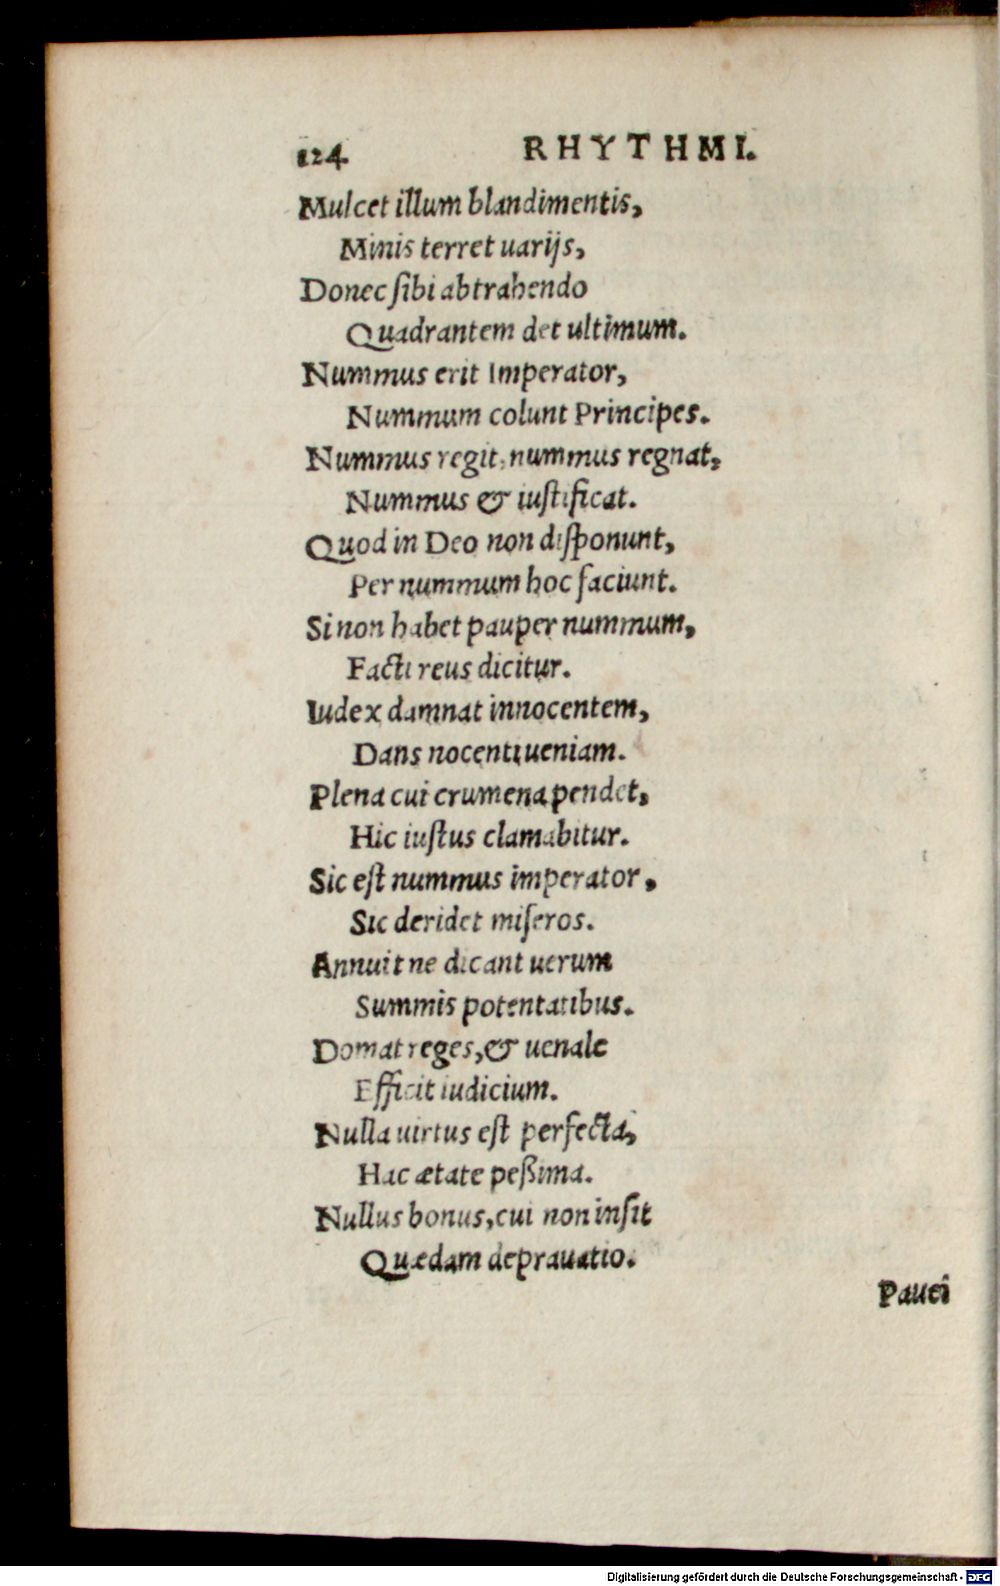 124. RHYTHMI.
Mulcet illum blandimentis,
Minis terret uarijs,
Donec ſibi abtrahendo
Quadrantem det ultimum.
Nummus erit Imperator,
Nummum colunt Principes.
Nummus regit, nummus regnat,
Nummus & iuſtificat.
Quod in Deo non diſponunt,
Per nummum hoc faciunt.
Si non habet pauper nummum,
Facti reus dicitur.
Iudex damnat innocentem,
Dans nocenti ueniam.
Plena cui crumena pendet,
Hic iuſtus clamabitur.
Sic eſt nummus imperator,
Sic deridet miſeros.
Annuit ne dicant uerum
Summis potentatibus.
Domat reges, & uenale
Efficit iudicium.
Nulla uirtus eſt perfecta,
Hac ætate peßima.
Nullus bonus, cui non inſit
Quædam deprauatio.
Pauci
Digitalisierung gefördert durch die Deutsche Forschungsgemeinschaft - DFG